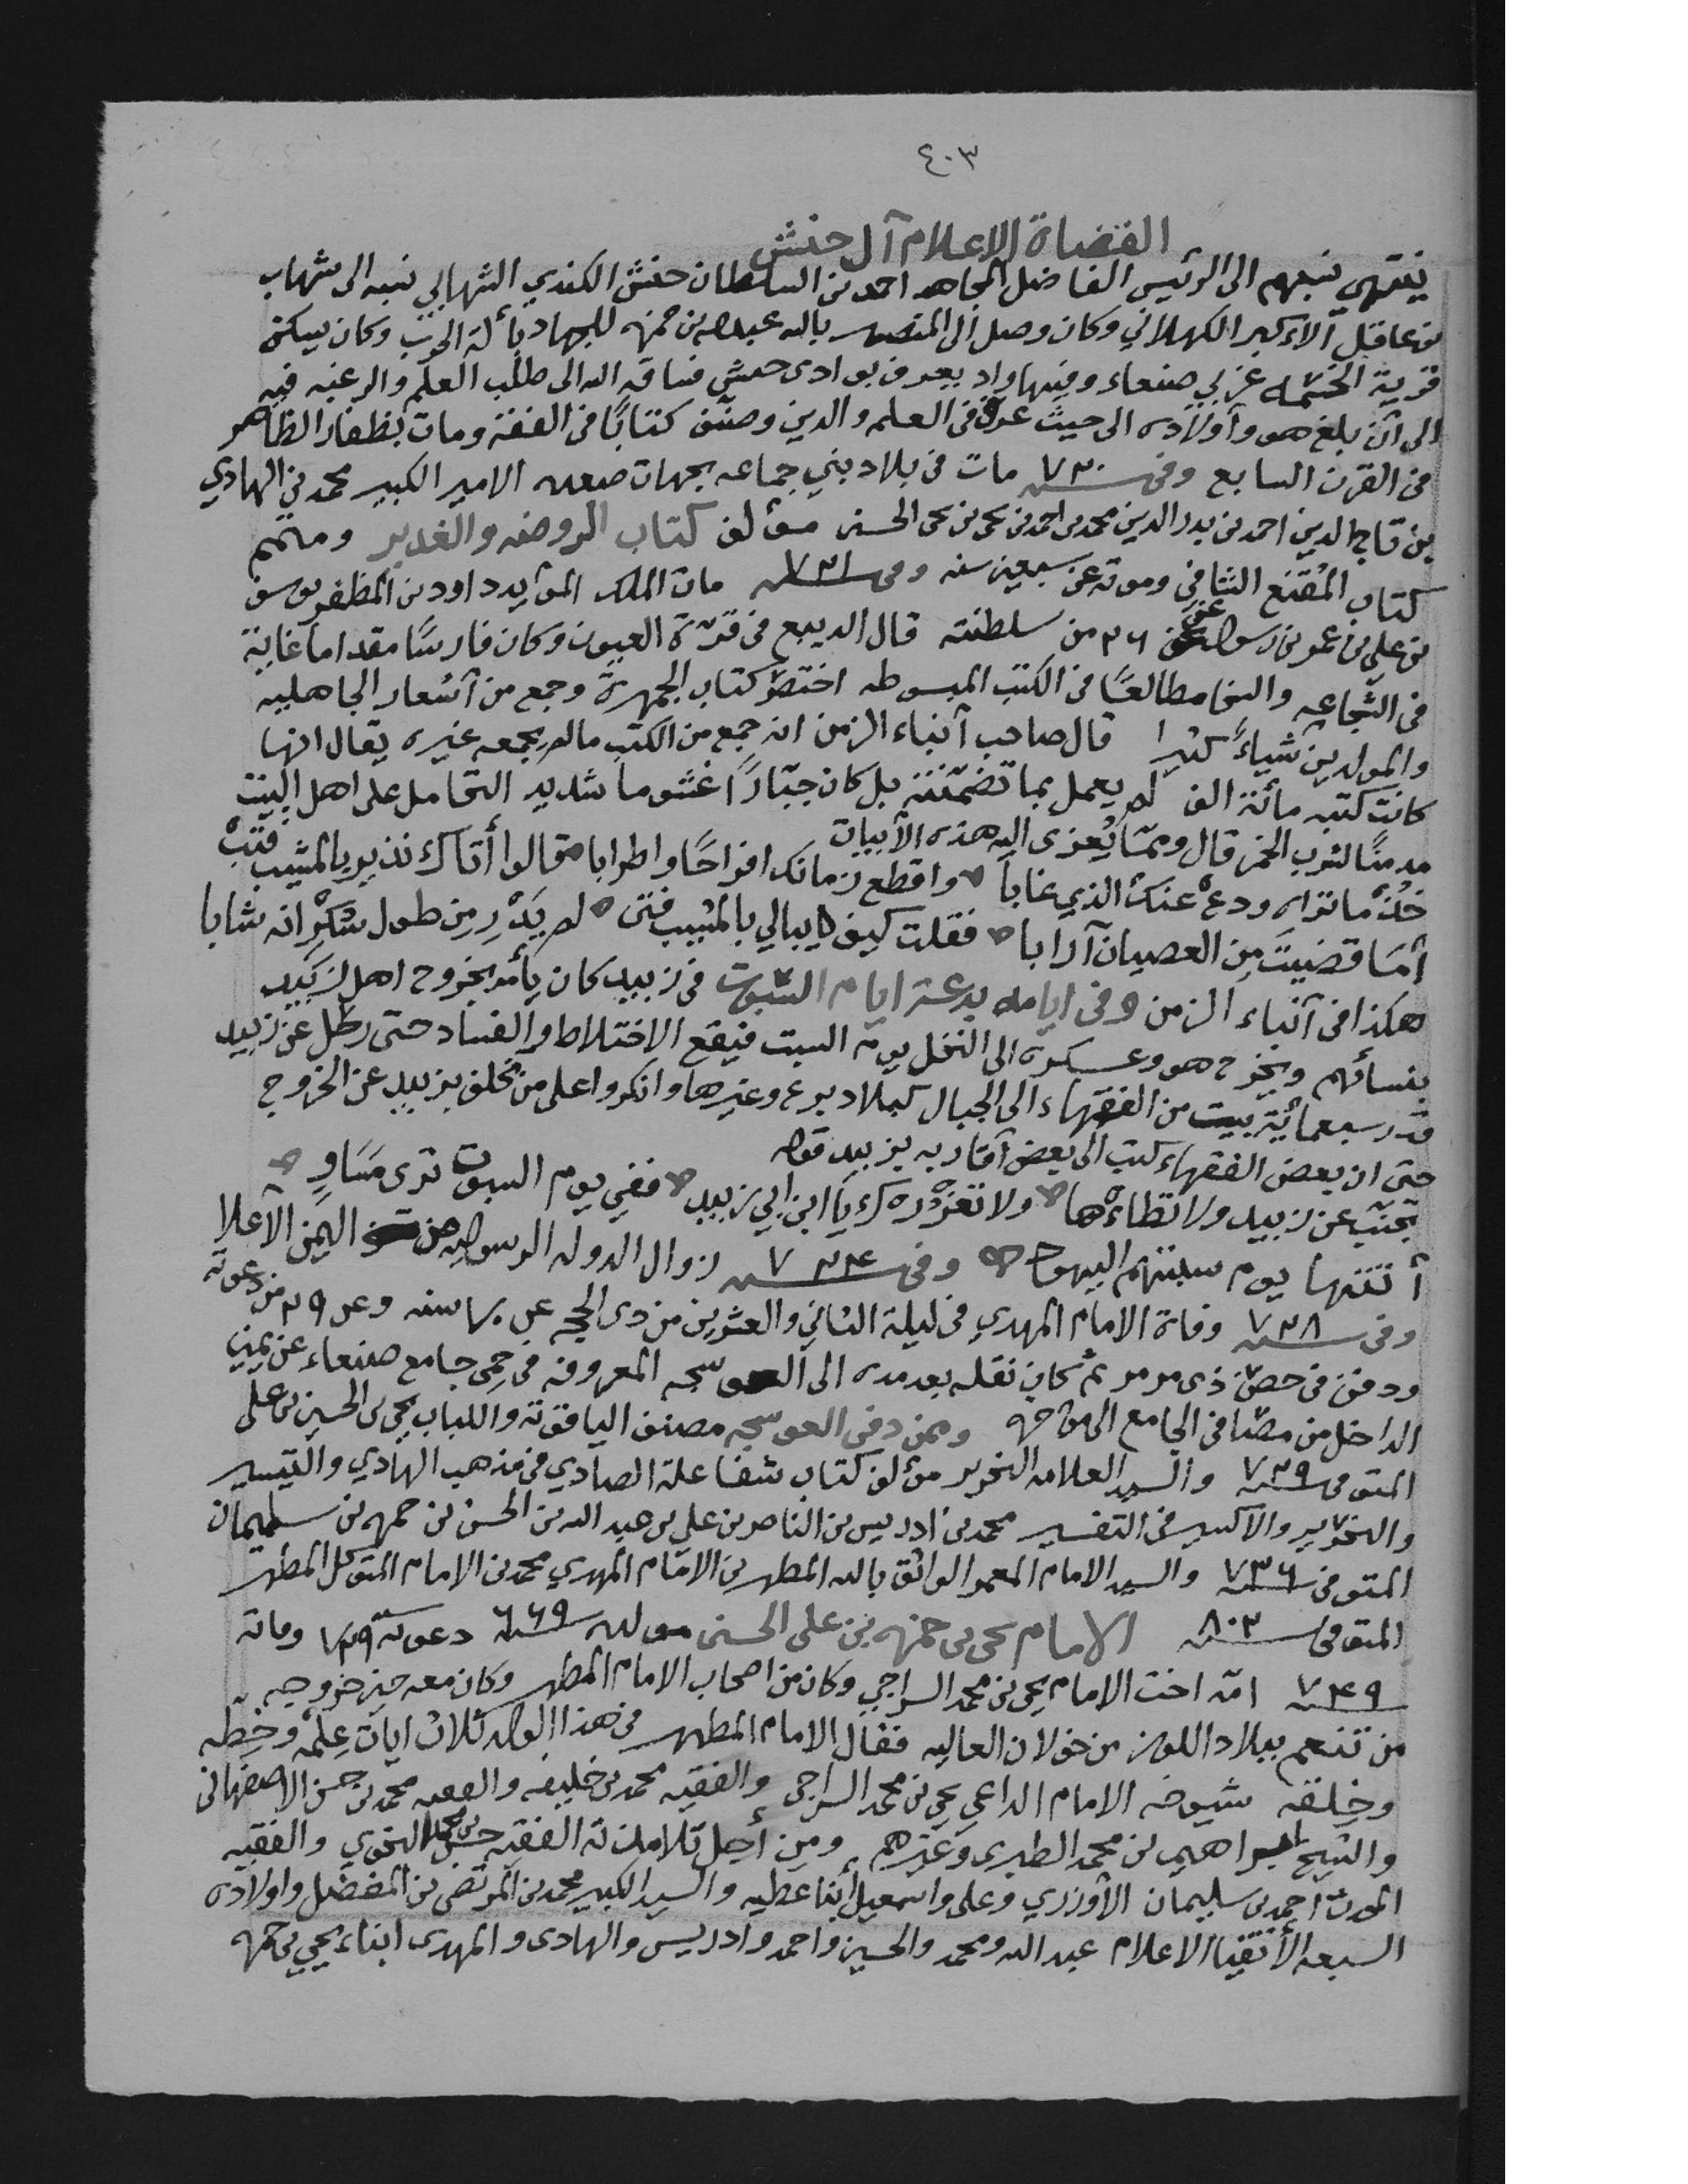 ٤٠٣
القضاة الاعلام آل حنش
ينتهي نسبهم الى الرئيس الفاضل المجاهد احمد بن السلطان حنش الكندي الشهابي نسبه الى شهاب
بن عاقل الاكبر الكهلاني وكان وصل الى المنصور بالله عبدالله بن حمزه للجهاد بألة الحرب وكان يسكن
قرية غربي صنعاء وفيها وادٍ يعرف بوادى حنش فساقه الله الى طلب العلم والرغبه فيه
الى أن بلغ هو وأولاده الى حيث عرف في العلم والدين وصنّف كتاباً في الفقه ومات بظفار الظاهر
في القرن السابع وفي سنه ٧٣٠ مات في بلاد بني جماعه بجهات صعده الامير الكبير محمد بن الهادي
بن تاج الدين احمد بن بدر الدين محمد بن احمد بن يحيى بن يحيى الحسني مؤلف كتاب الروضه والغدير ومتمم
كتاب المُقنع الشافي وموته عن سبعين سنه وفي سنه ٧٢١ مات الملك المؤيد داود بن المظفر يوسف
بن علي بن عمر بن رسول عن ٢٦ من سلطنته قال الديبع في قرّة العيون وكان فارسًا مقداما غاية
في الشجاعه والسخا مطالعًا في الكتب المبسوطه اختصر كتاب الجمهرة وجمع من أشعار الجاهليه
والمولدين شياءً كثيرا قال صاحب أنباء الزمن انه جمع من الكتب مالم يجمعه غيره يقال انها
كانت كتبه مائة الف لم يعمل بما تضمّنته بل كان جبّاراً غشوما شديد التحامل على اهل البيت
مدمنًا لشرب الخمر قال وممّا يُعزى اليه هذه الأبيات
خُذْ ما تراه ودعْ عنك الذي غابا ٥ واقطع زمانك افراحًا واطرابا ٥ قالوا أتاك نذير بالمشيب فتُبْ
أمَا قضيتَ مِن العصيان آرابا ٥ فقلت كيف يبالي بالمشيب فتى ٥ لم يَدْرِ مِن طول سُكْرٍ انه شابا
هكذا في أنباء الزمن وفي ايامه بدعة ايام السُّبوت في زبيد كان يأمر بخروج اهل زَبيد
بنسائهم ويخرج هو وعسكره الى النخل يوم السبت فيقع الاختلاط والفساد حتى رحل عن زبيد
قدر سبعمائة بيت من الفقهاء الى الجبال كبلاد برع وغيرها وانكروا على من تخلف بزبيد عن الخروج
حتى ان بعض الفقهاء كتب الى بعض أقاربه بزبيد قوله
تجنّب عن زبيد ولا تطاءْها ٥ ولا تغرُرْك يا ابن ابي زبيد ٥ ففي يوم السبوت ترى مَسَاوٍ ٥
أتتها يوم سبتهم اليهود ٥ وفي سنه ٧٢٤ زوال الدوله الرسوليه من اليمن الأعلا
وفي سنه ٧٢٨ وفاة الامام المهدي في ليلة الثاني والعشرين من ذي الحجه عن سنه وعن ٢٩ من دعوته
ودفن في حصن ذي مرمر ثم كان نقله بعد مده الى العوسجه المعروفه في حِمى جامع صنعاء عن يمين
الداخل من الجامع الى وممن دفن العوسجه مصنف الياقوته واللباب يحيى بن الحسين بن علي
المتوفى سنه ٧٢٩ والسيد العلامه النحرير مؤلف كتاب شفا علة الصادي في مذهب الهادي والتيسير
والتحرير والاكسير في التفسير محمد بن ادريس بن الناصر بن علي بن عبد الله بن الحسن بن حمزه بن سليمان
المتوفى سنه ٧٣٦ والسيد الامام المعمر الواثق بالله المطهر بن الامام المهدي محمد بن الامام المتوكل المطهر
المتوفى سنه ٨٠٢ الامام يحيى بن حمزه بن علي الحسني مولده سنه ٦٦٩ دعوته سنه ٧٢٩ وفاته
سنه ٧٤٩ امه اخت الامام يحيى بن محمد السراجي وكان من اصحاب الامام المطهر وكان معه حين خروجه
من تنعم ببلاد اللوز من خولان العاليه فقال الامام المطهر في هذا الولد ثلاث ايات عِلمُه وخطّه
وخِلقه شيوخه الامام الداعي يحيى بن محمد السراجي والفقيه محمد بن خليفه والفقيه محمد بن حسن الاصفهاني
والشيخ ابراهيم بن محمد الطبري وغيرهم ومن أجل تلامذته الفقيه حسن بن محمد النحوي والفقيه
المحدث احمد بن سليمان الأوزري وعلي واسمعيل أبنا عطيه والسيد الكبير محمد بن المرتضى بن المفضل واولاده
السبعه الأتقيا الاعلام عبد الله ومحمد والحسين واحمد وادريس والهادى والمهدى ابناء يحيى بن حمزه